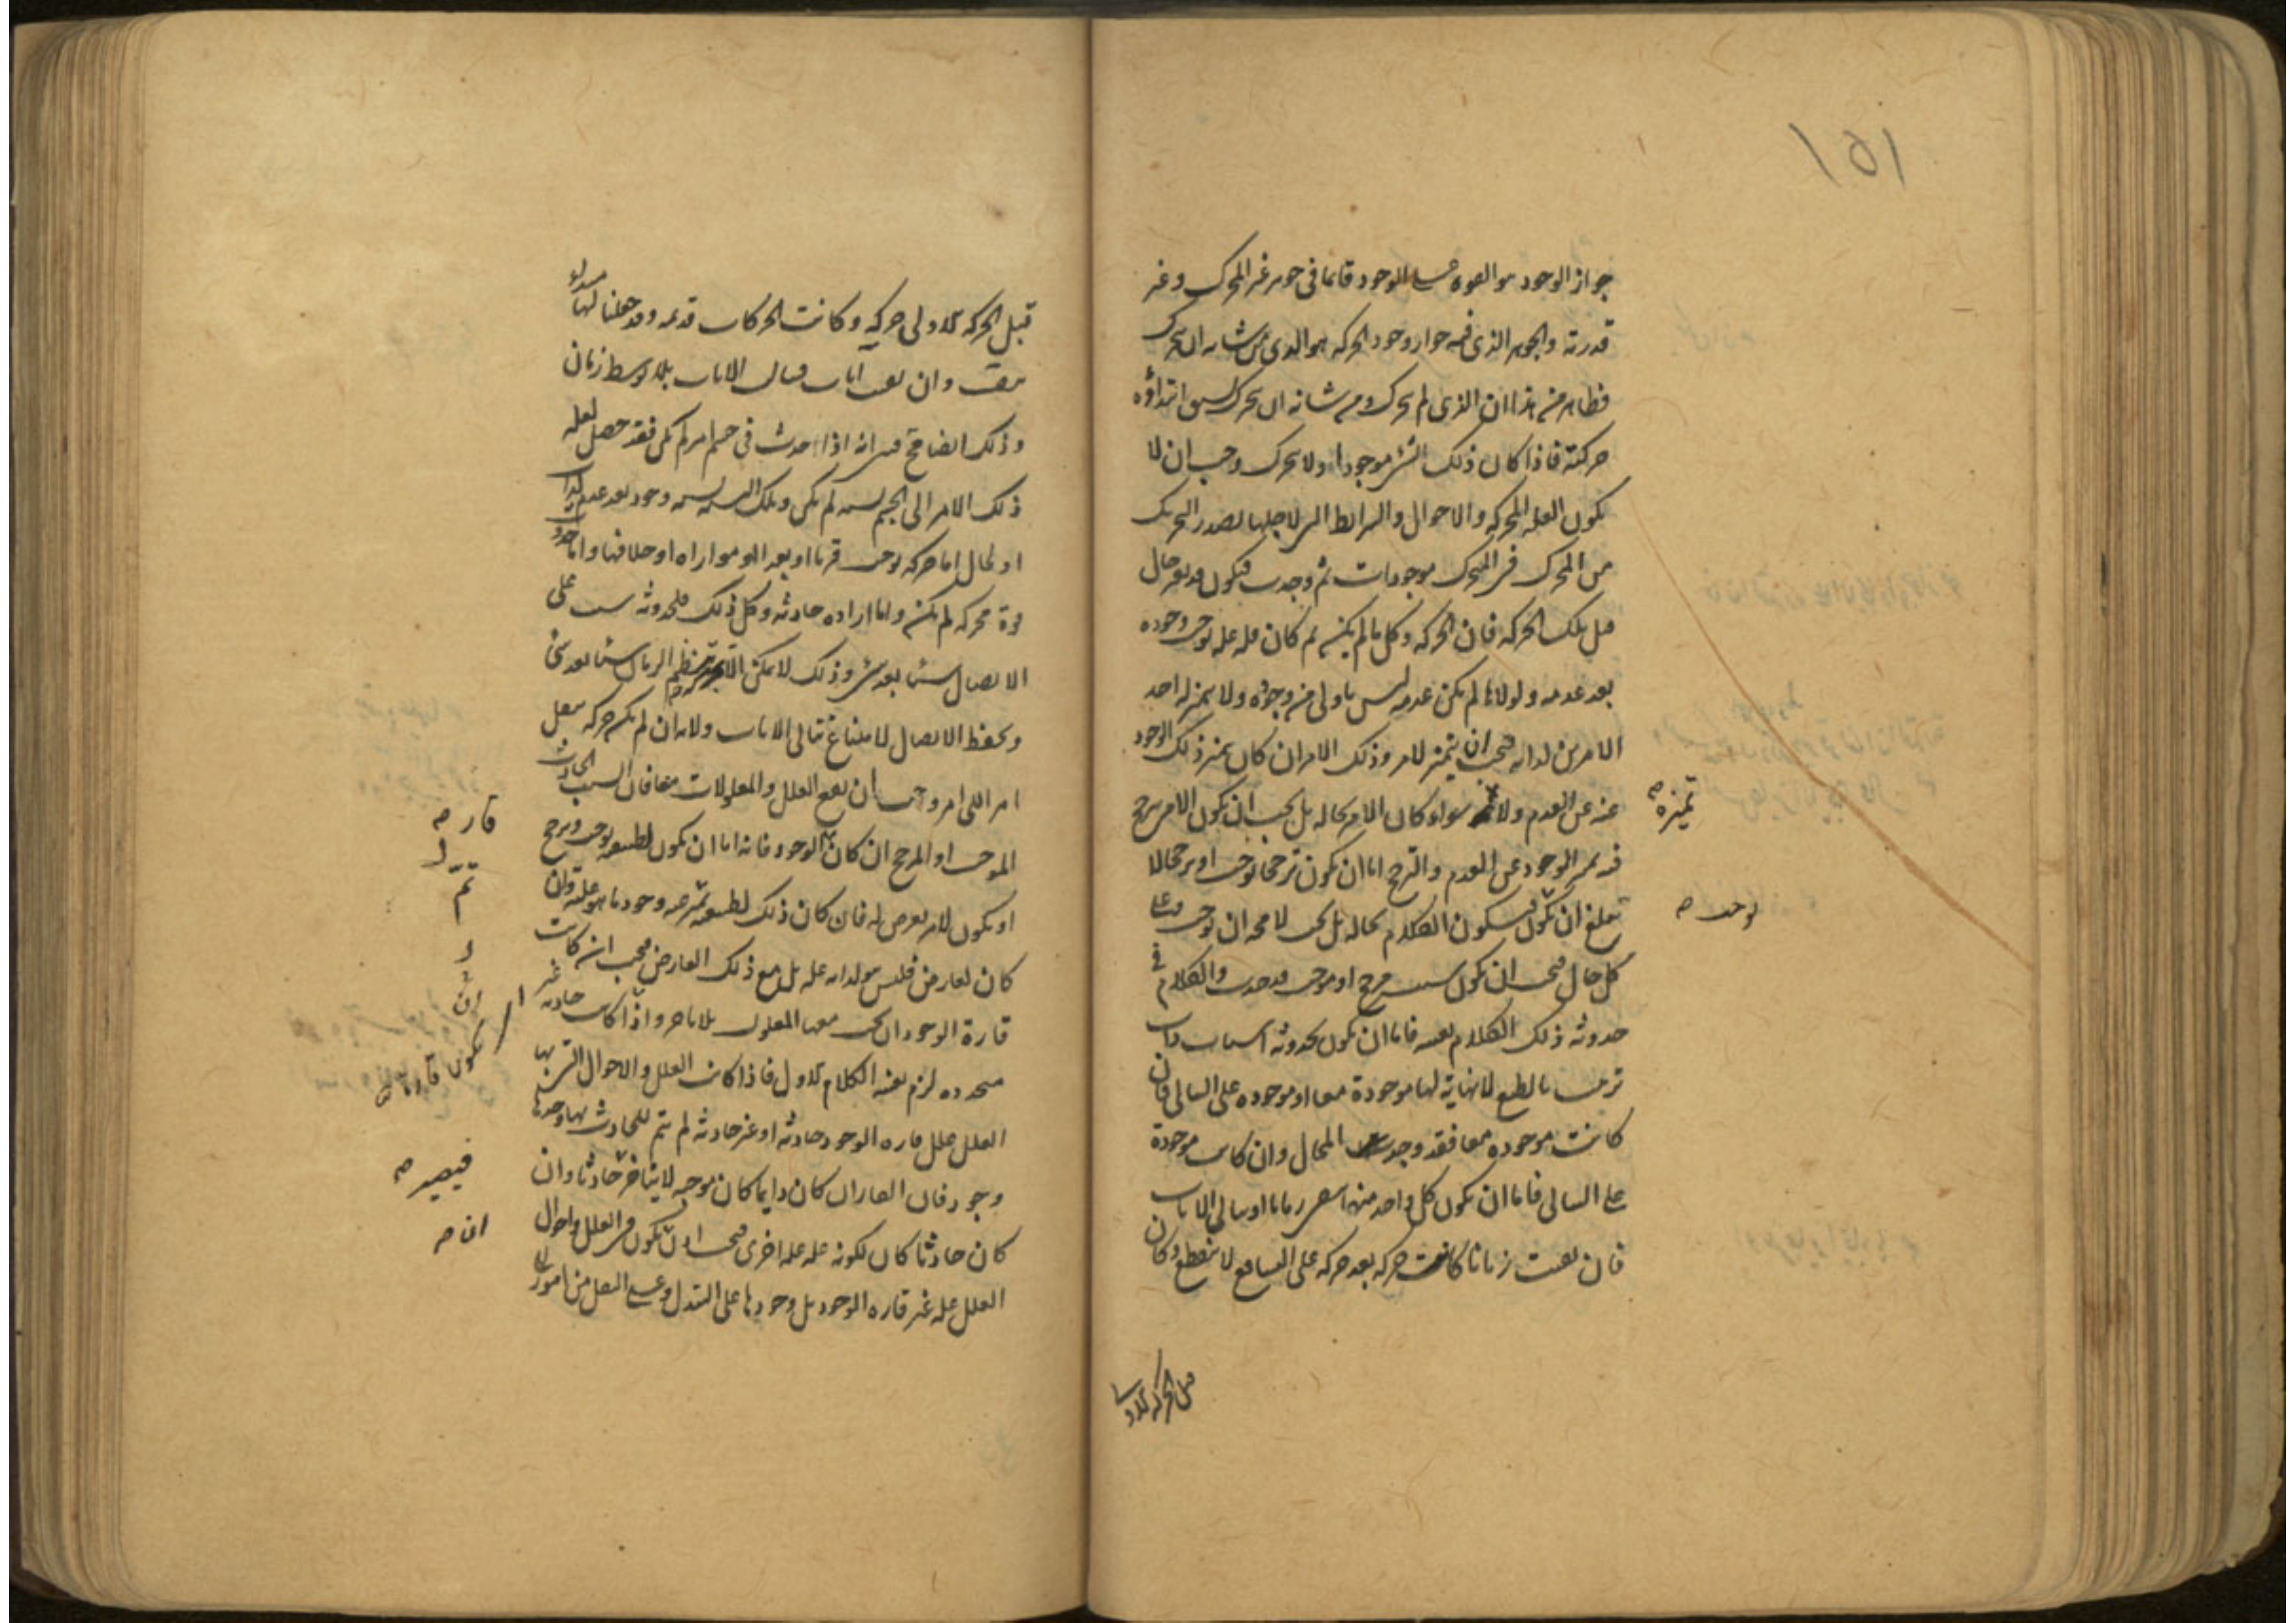 ١٥١
جواز الوجود هو القوة على الوجود قائما في جوهر غير المحرك وغير
قدرته والجوهر الذي فيه جواز وجود الحركة هو الذي من شانه ان يتحرك
فظاهر من هذا ان الذي لم يتحرك ومن شانه ان يتحرك يسبق ابتداؤه
حركته فاذا كان ذلك الشئ موجودا ولا يتحرك وجب ان لا
يكون العلة المحركة والاحوال والشرائط التي لاجلها يصدر التحريك
من المحرك في المتحرك موجودات ثم وجدت فيكون قد تغير حال
قبل تلك الحركة فان الحركة وكل ما لم يكن ثم كان فله علة توجب وجوده
بعد عدمه ولولاها لم يكن عدمه ليس باولى من وجوده ولا يتميز له احد
الامرين لذاته فيجب ان يتميز لامر وذلك الامر ان كان تميز ذلك الوجود
عنه عن العدم ولا سواء لو كان الامر بحاله بل يجب ان يكون الامر يترجح
تميزه صح
فيه تميز الوجود عن العدم والترجح اما ان يكون ترجحا يوجب او ترجحا لا
يبلغ ان يكون فيكون الكلام بحاله بل يجب لا محة ان يوجب وعلى
يوجب صح
كل حال فيجب ان يكون سبب مرجح او موجب قد حدث والكلام في
حدوثه ذلك الكلام بعينه فاما ان يكون لحدوثه اسباب ذات
ترتيب بالطبع لا نهاية لها موجودة معا او موجودة على التتالي فان
كانت موجودة معا فقد وجدت المحال وان كانت موجودة
على التتالي فاما ان يكون كل واحد منها يبقى زمانا او يتتالى الانات
فان بقيت زمانا كانت حركة بعد حركة على التتابع لا تنقطع وكان
قبل الحركة الاولى
قبل الحركة الاولى حركة وكانت الحركات قديمة وقد جعلنا لها مبدأ
وان بقيت آنات فتتالى الانات بلا توسط زمان
وذلك ايضا محال فبين انه اذا حدث في جسم امر لم يكن فقد حصل لعلة
ذلك الامر الى الجسم نسبة لم تكن وتلك النسبة نسبة وجود بعد عدم لذات
او لحال اما حركة توجب قربا او بعدا او موازاة او خلافها واما حدوث
قوة محركة لم تكن واما ارادة حادثة وكل ذلك فلحدوثه سبب على
الاتصال شيئا بعد شئ وذلك لا يمكن الا بحركة تنظم الزمان شيئا بعد شئ
ويحفظ الاتصال لامتناع تتالي الانات ولانه ان لم يكن حركة تنقل
امرا الى امر وجب ان تقع العلل والمعلولات معا فان السبب الحادث
الموجب او المرجح ان كان الوجود فانه اما ان يكون لطبيعته يوجب ويرجح
قار صح
او يكون لامر يعرض له فان كان ذلك لطبيعته عنه وجود ما هو علة وان
كان لعارض فليس هو لذاته علة بل مع ذلك العارض فيجب ان كانت
قارة الوجود ان يجب معها المعلول بلا تاخر واذا كانت حادثة غير
يكون قارة
متجددة لزم بعينه الكلام الاول فاذا كانت العلل والاحوال التي بها
العلل علل قارة الوجود حادثة او غير حادثة لم يتم للحادث بها وحدها
وجود فان القار ان كان دايما كان موجبه لا يتاخر حادثا وان
فيصير صح
كان حادثا كان لكونه علة علة اخرى فيجب اذن ان يكون في العلل واحوال
ان صح
العلل علة غير قارة الوجود بل وجودها على التبدل وعلى النقل من امور